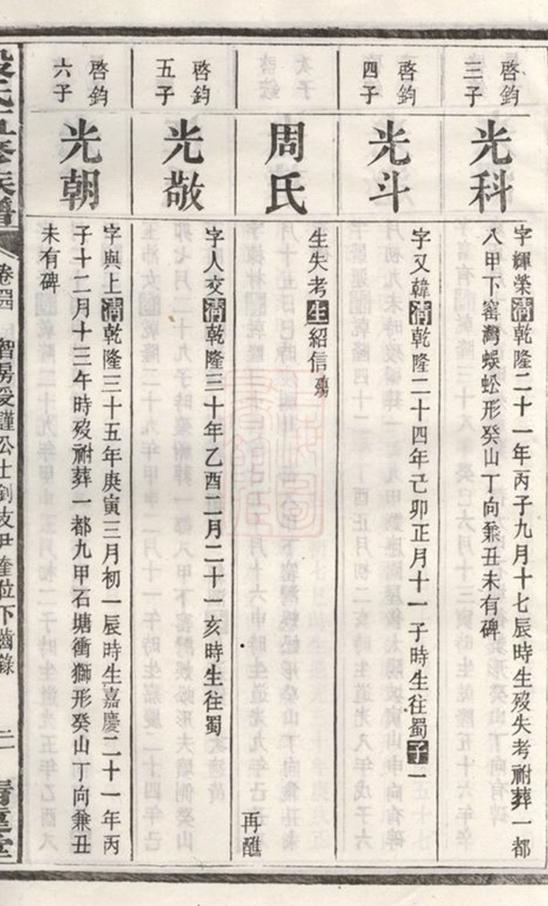 啓鈞
三子
光科
字輝榮清乾隆二十一年丙子九月十七辰時生歿失考祔葬一都
八甲下窑灣蜈蚣形癸山丁向兼丑未有碑
啓鈞
四子
光斗
字又韓清乾隆二十四年己卯正月十一子時生往蜀子一
周氏
生失考生紹信殤
再醮
啓鈞
五子
光敬
字人交清乾隆三十年乙酉二月二十一亥時生往蜀
啓鈞
六子
光朝
字與上清乾隆三十五年庚寅三月初一辰時生嘉慶二十一年丙
子十二月十三午時歿祔葬一都九甲石塘衝獅形癸山丁向兼丑
未有碑
氏五修族譜
卷四 智房受謹公仕釗支尹奎位下齒錄
二